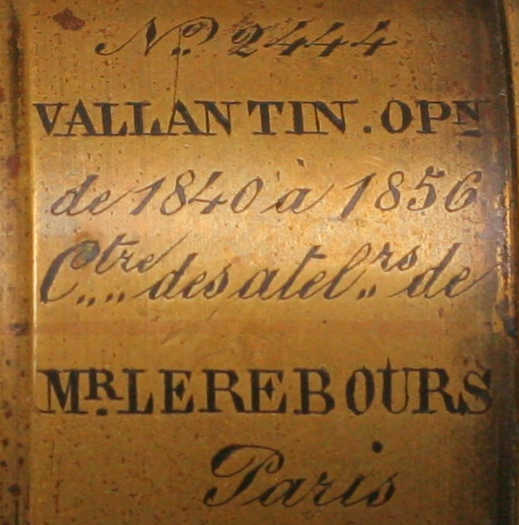 No. 2444
VALLANTIN. OPN
de 1840 à 1856
Ctre„„ des atel„rs de
MR. LEREBOURS
Paris